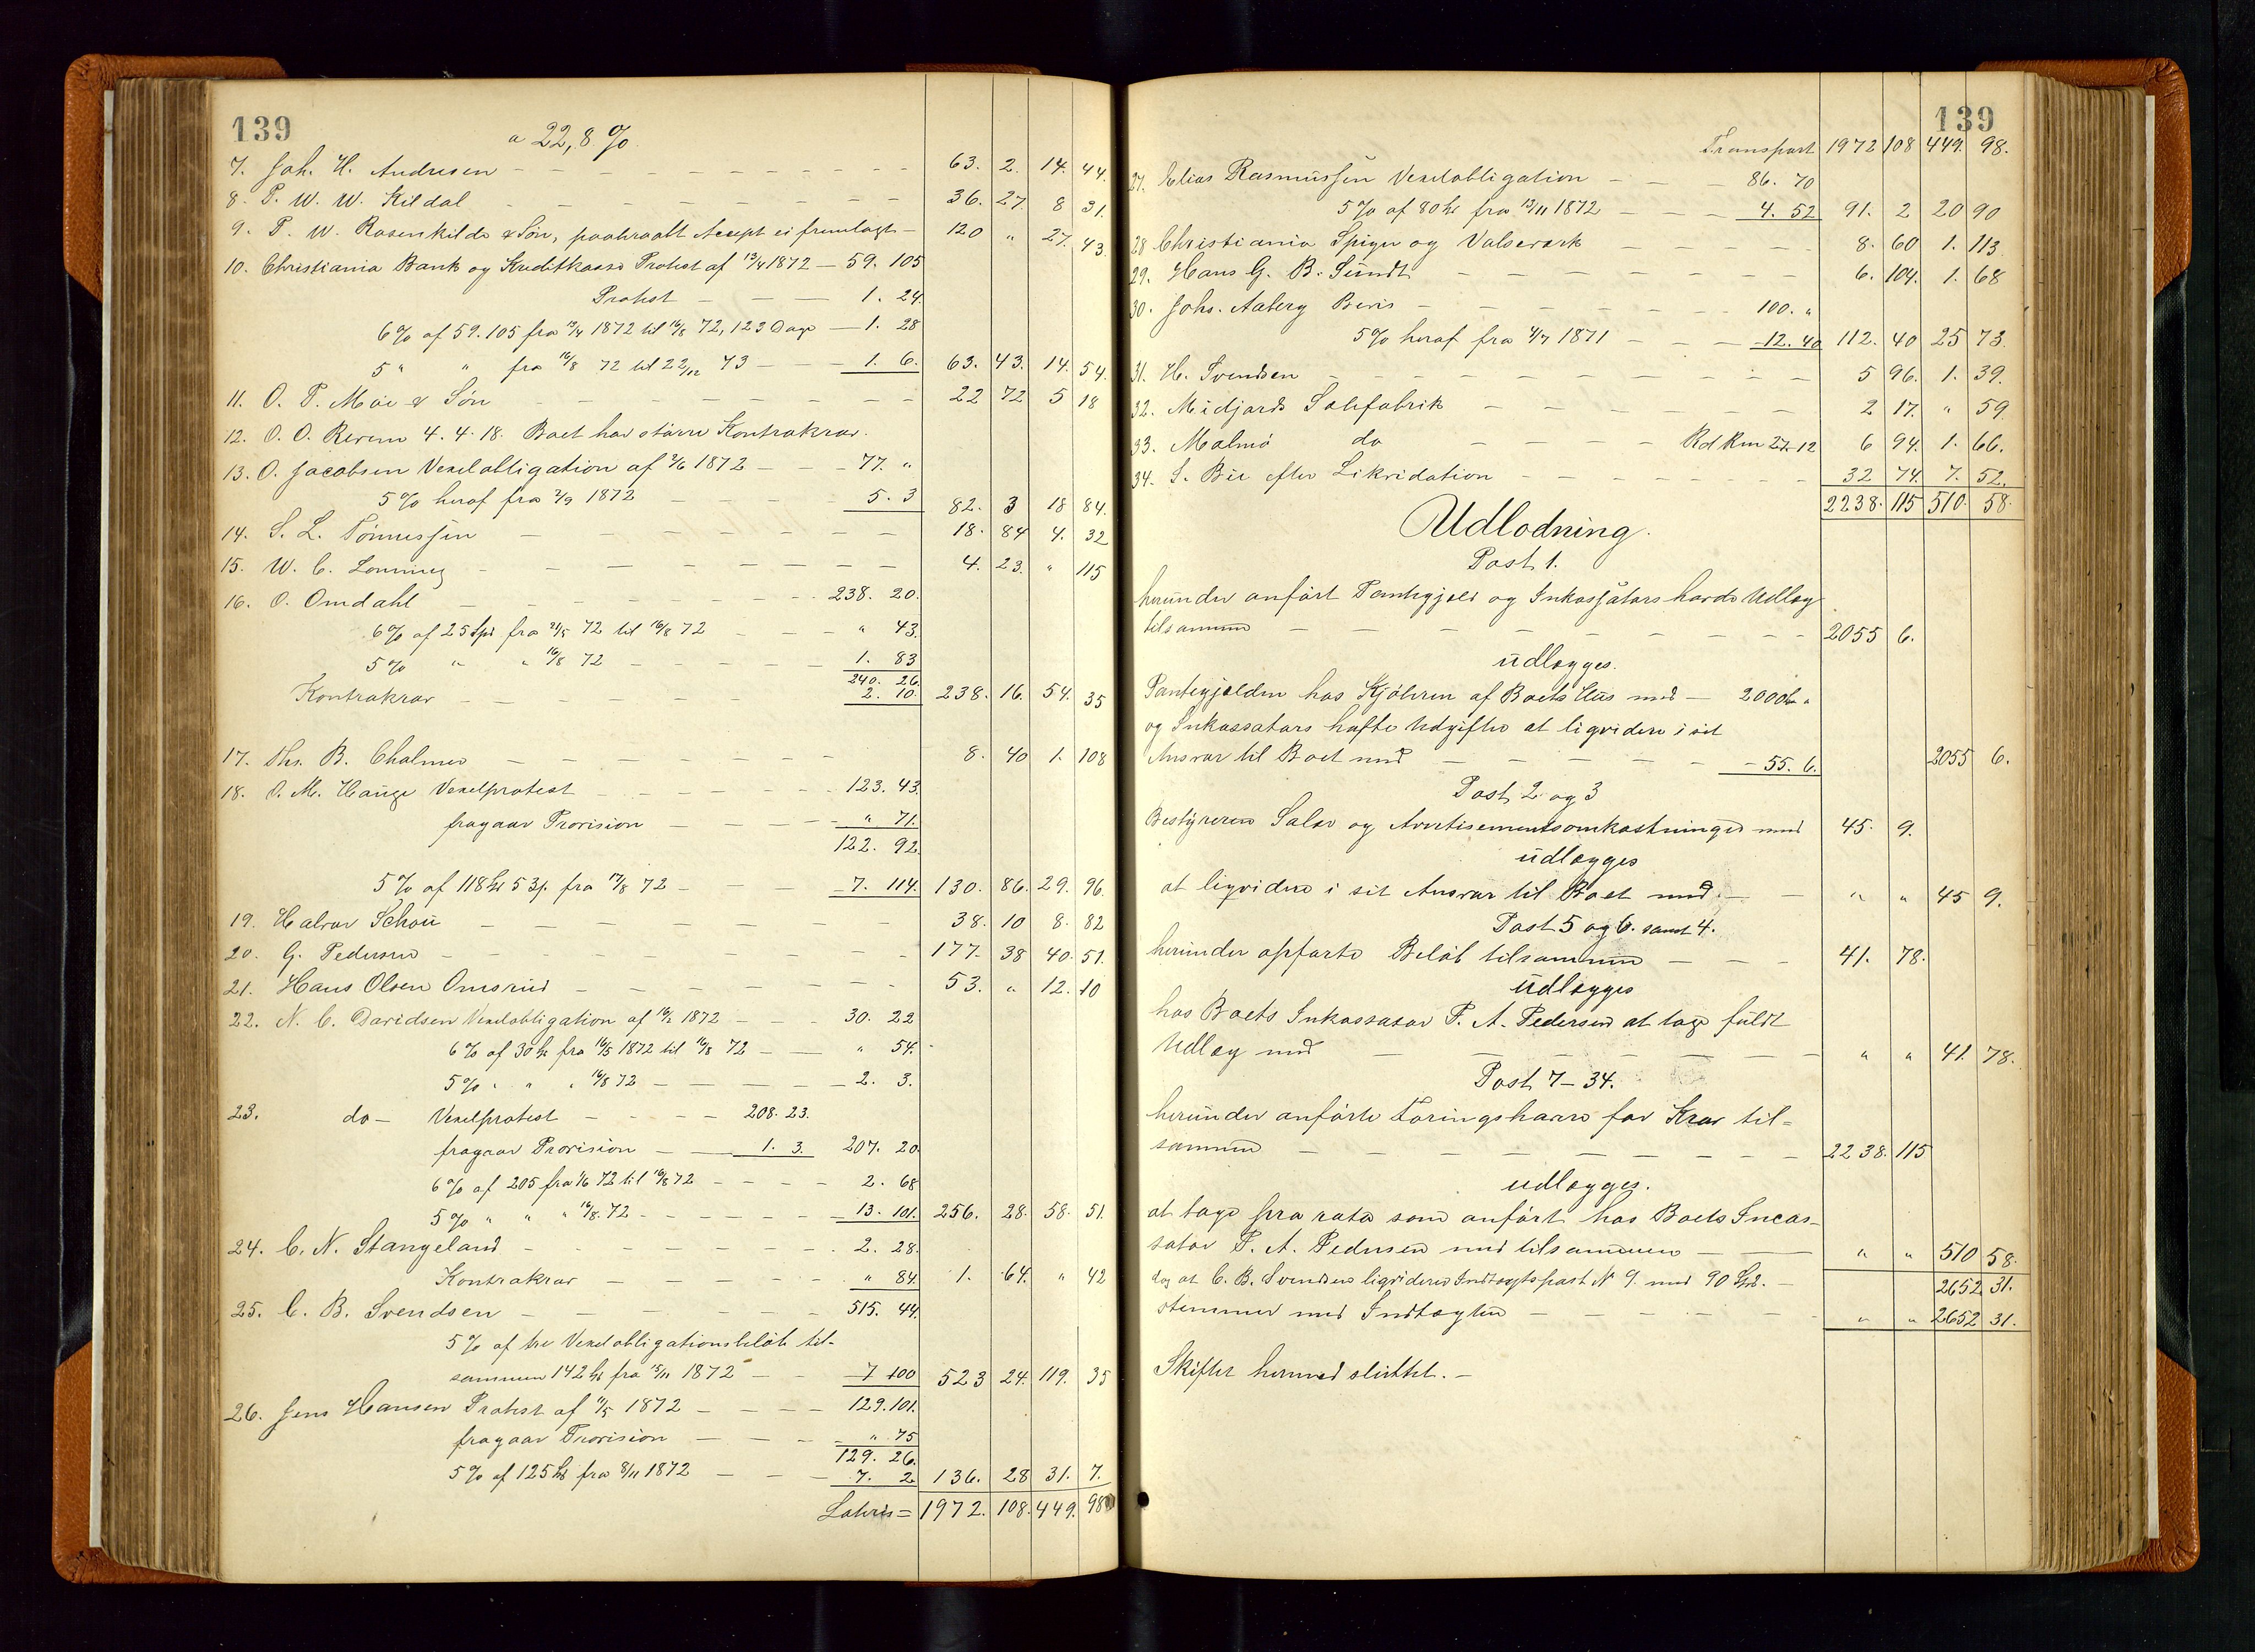 139
a 22,8 %
7. Joh. H. Andresen — 63. 2. 14. 44.
8. P. W. W. Kildal — 36. 27. 8 31.
9. P. W. Rosenkilde & Søn, paaberaabt Accept ei fremlagt — 120 " 27. 43.
10. Christiania Bank og Kreditkasse Protest af 13/4 1872 — 59. 105
Protest — 1. 24.
6% af 59. 105 fra 13/4 1872 til 16/8 72, 123 Dage — 1. 28
5 " " fra 16/8 72 til 22/12 73 — 1. 6. 63. 43. 14. 54.
11. O. P. Moe & Søn — 22 72 5 18
12. O. O. Revem 4. 4. 18. Boet har større Kontrakrav.
13. O. Jacobsen Vexelobligation af 2/6 1872 — 77. "
5% heraf fra 2/9 1872 — 5. 3 82. 3 18 84.
14. S. L. Tönnessen — 18. 84 4. 32
15. W. C. Lonning — 4. 23. " 115
16. O. Omdahl — 238. 20.
6% af 25 Spd fra 21/5 72 til 16/8 72 — " 43.
5% " " 16/8 72 — 1. 83
240. 26.
Kontrakrav — 2. 10. 238. 16. 54. 35
17. Ths. B. Chalmer — 8. 40 1. 108
18. O. M. Hauge Vexelprotest — 123. 43.
fragaar Provision — " 71.
122. 92.
5% af 118 Spd 53 s. fra 17/8 72 — 7. 114. 130. 86. 29. 96.
19. Halvor Schou — 38. 10 8. 82
20. G. Pedersen — 177. 38 40. 51.
21. Hans Olsen Omsrud — 53. " 12. 10
22. N. C. Davidsen Vexelobligation af 16/2 1872 — 30. 22
6% af 30 Spd fra 16/5 1872 til 16/8 72 — " 54.
5% " " " 16/8 72 — 2. 3.
23. do — Vexelprotest — 208. 23.
fragaar Provision — 1. 3. 207. 20.
6% af 205 fra 1/6 72 til 16/8 72 — 2. 68
5% " " " 16/8. 72 — 13. 101. 256. 28. 58. 51.
24. C. N. Stangeland — 2. 28.
Kontrakrav — " 84. 1. 64. " 42
25. C. B. Svendsen — 515. 44.
5% af tre Vexelobligationsbeløb til-
sammen 142 Spd fra 15/11 1872 — 7 100 523 24. 119. 35
26. Jens Hansen Protest af 11/5 1872 — 129. 101.
fragaar Provision — " 75
129. 26.
5% af 125 Spd fra 8/11 1872 — 7. 2. 136. 28 31. 7.
Lateris = 1972. 108. 449. 98
139
Transport 1972 108 449. 98.
27. Elias Rasmussen Vexelobligation — 86. 70
5% af 80 Spd fra 13/11 1872 — 4. 52 91. 2 20 90
28 Christiania Spiger og Valseverk — 8. 60 1. 113.
29. Hans G. B. Sundt — 6. 104. 1. 68
30. Johs. Aaberg Bevis — 100. "
5% heraf fra 4/7 1871 — 12. 40 112. 40 25 73.
31. H. Svendsen — 5 96. 1. 39.
32. Midjords Solefabrik — 2 17. " 59
33. Malmö do — Rd Rm 27. 12 6 94. 1. 66.
34. S. Bie efter Likvidation — 32 74. 7. 52.
2238. 115 510. 58.
Udlodning.
Post 1.
herunder anført Pantegjæld og Inkassators havde Udlæg
tilsammen — 2055 6.
udlægges.
Pantegjælden hos Kjøberen af Boets Huus med — 2000 Spd "
og Inkassators havte Udgifter at liqvidere i sit
Ansvar til Boet med — 55. 6. 2055 6.
Post 2 og 3
Bestyrerens Salær og Avertisementsomkostninger med 45. 9.
udlægges
at liqvidere i sit Ansvar til Boet med — " " 45 9.
Post 5 og 6. samt 4.
herunder opførte Beløb tilsammen — 41. 78.
udlægges
hos Boets Inkassator P. A. Pedersen at tage fuldt
Udlæg med — " " 41. 78.
Post 7 – 34.
herunder anførte Fordringshavere for Krav til=
sammen — 2238. 115
udlægges.
at tage pro rata som anført hos Boets Incas-
sator P. A. Pedersen med tilsammen — " " 510 58.
dog at C. B. Svendsen liqviderer Indtægtspost N 9. med 90 Spd. — 2652. 31.
stemmer med Indtægten — " " 2652 31.
Skiftet hermed sluttet. —